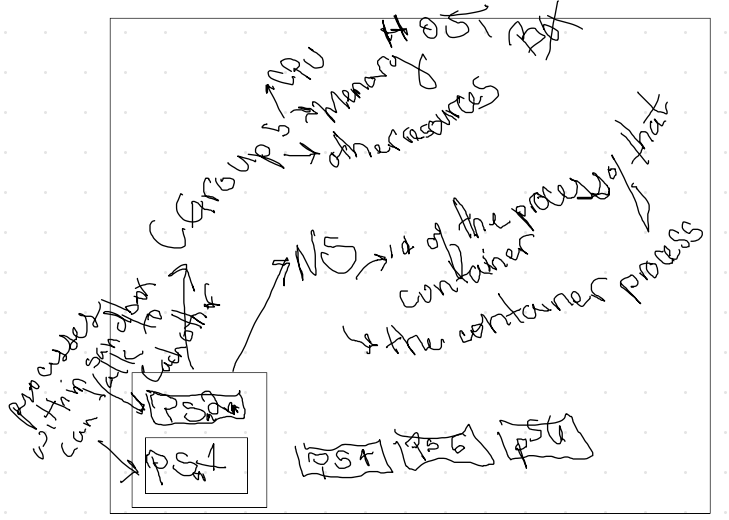 HOST Box
CPU
Memory
other resources
CGroups
NS
id of the process of that
container
the container process
processes
within sandbox
can talk to
each other
PS2
PS1
PS4
PS6